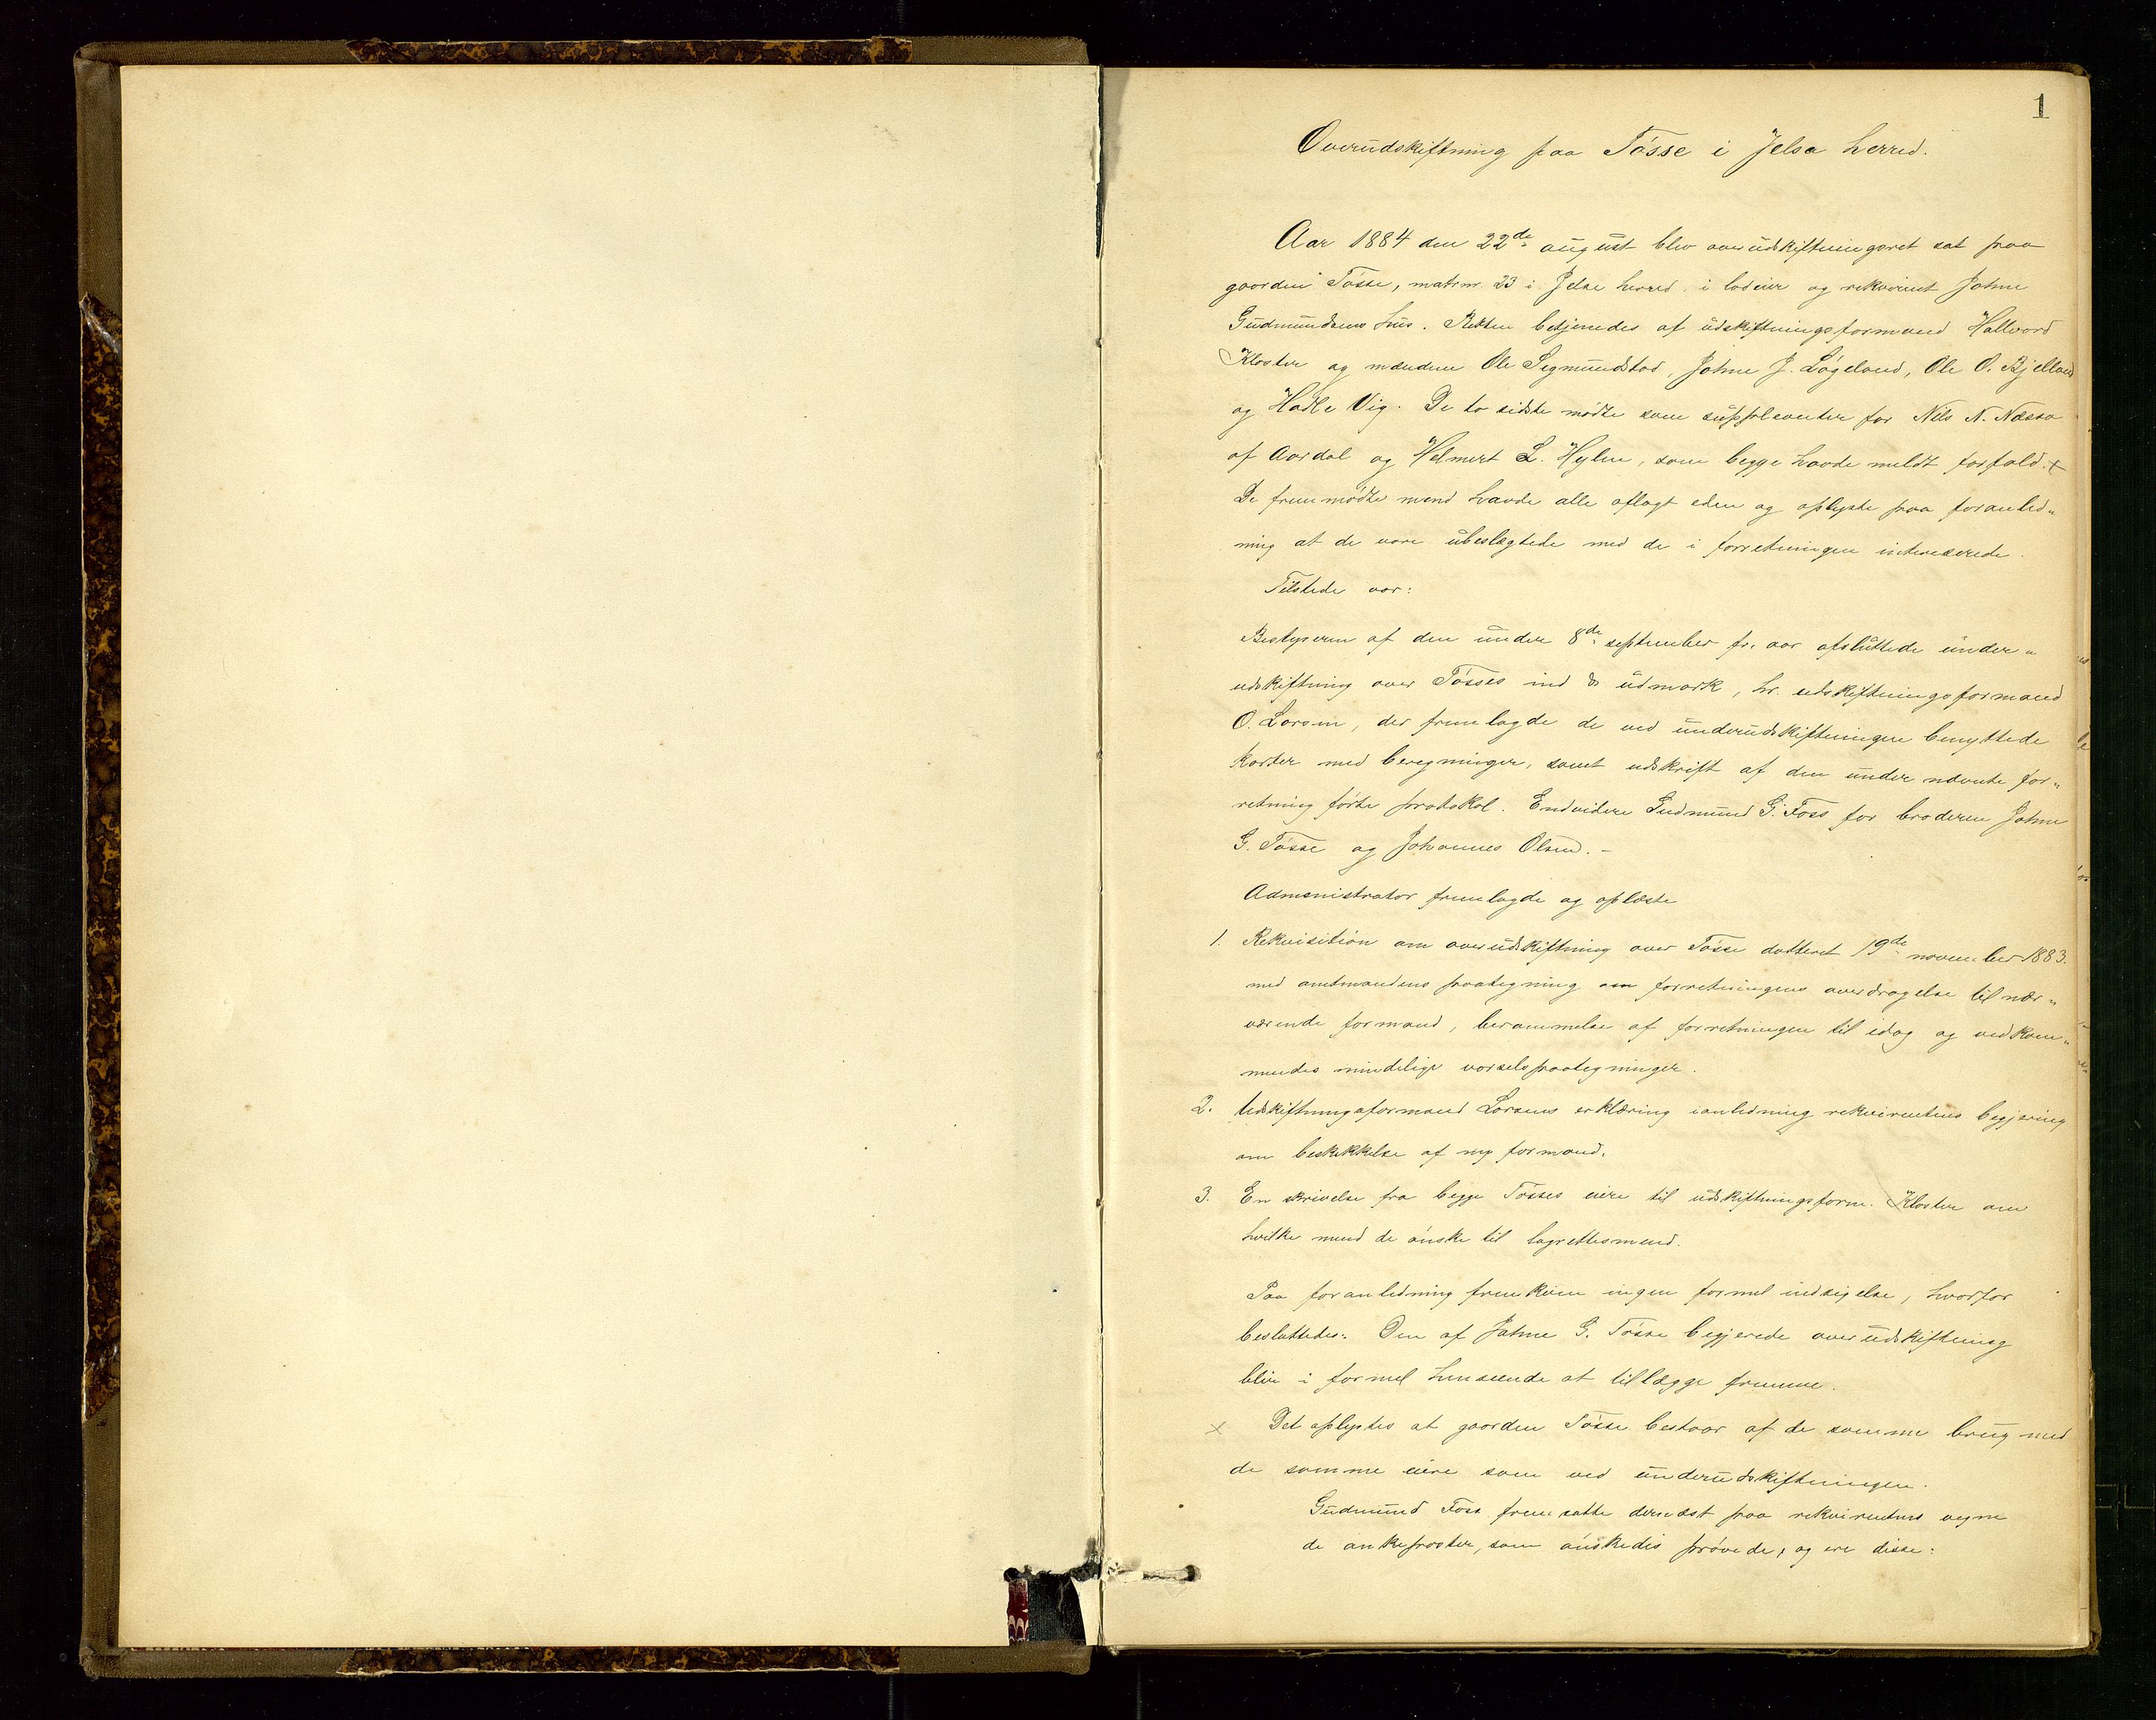 1
Overudskiftning paa Tøsse i Jelsa herred.
Aar 1884 den 22de august blev overudskiftningsret sat paa
gaarden Tøsse, matrnr. 23 i Jelse herred i lodeier og rekvirent Johne
Gudmundsens hus. Retten betjenedes af udskiftningsformand Hallvard
Kloster og mændene Ole Sigmundstad, Johne J. Løgeland, Ole O. Bjelland
og Hadle Vig. De to sidste mødte som suppleanter for Nils N. Næssa
af Aardal og Helmert L. Hylen, som begge havde meldt forfald. x
De fremmødte mænd havde alle aflagt eden og oplyste paa foranled„
ning at de vare ubeslægtede med de i forretningen interesserede.
Tilstede var:
Bestyreren af den under 8de september f. aar afsluttede under„
udskiftning over Tøsses ind & udmark, hr. udskiftningsformand
O. Larsen, der fremlagde de ved underudskiftningen benyttede
karter med beregninger, samt udskrift af den under nævnte for„
retning førte protokol. Endvidere Gudmund G. Foss for broderen Johne
G. Tøsse og Johannes Olsen. –
Administrator fremlagde og oplæste
1. Rekvisition om overudskiftning over Tøsse datteret 19de november 1883.
med amtmandens paategning om forretningens overdragelse til nær„
værende formand, berammelse af forretningen til idag og vedkom„
mendes mindelige varselspaategninger.
2. Udskiftningsformand Larsens erklæring ianledning rekvirentens begjæring
om beskikkelse af ny formand.
3. En skrivelse fra begge Tøsses eiere til udskiftningsform. Kloster om
hvilke mænd de ønske til lagrettesmænd.
Paa foranledning fremkom ingen formel indsigelse, hvorfor
besluttedes: Den af Johne G. Tøsse begjærede overudskiftning
blir i formel henseende at tillægge fremme.
x Det oplystes at gaarden Tøsse bestaar af de samme brug med
de samme eiere som ved underudskiftningen.
Gudmund Foss fremsatte dernæst paa rekvirentens vegne
de ankeposter, som ønskedes prøvede, og ere disse: